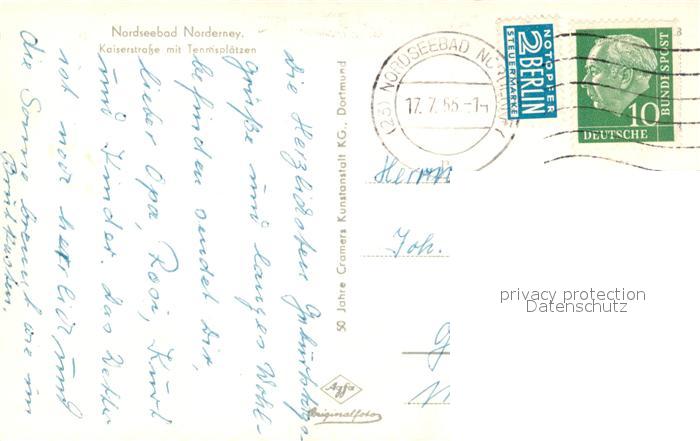 Nordseebad Norderney.
Kaiserstraße mit Tennisplätzen
die Herzlichsten Geburtstags
grüße und langes Wohl-
befinden sendet Dir,
lieber Opa, Rosi, Kurt
und Kinder. Das Wetter
ist noch herrlich und
die Sonne brennt wie im
50 Jahre Cramers Kunstanstalt KG., Dortmund
Agfa
Originalfoto
(23) NORDSEEBAD NORDERNEY
17.7.55.-1
NOTOPFER
2 BERLIN
STEUERMARKE
10
DEUTSCHE
BUNDESPOST
Herrn
Joh.
privacy protection
Datenschutz